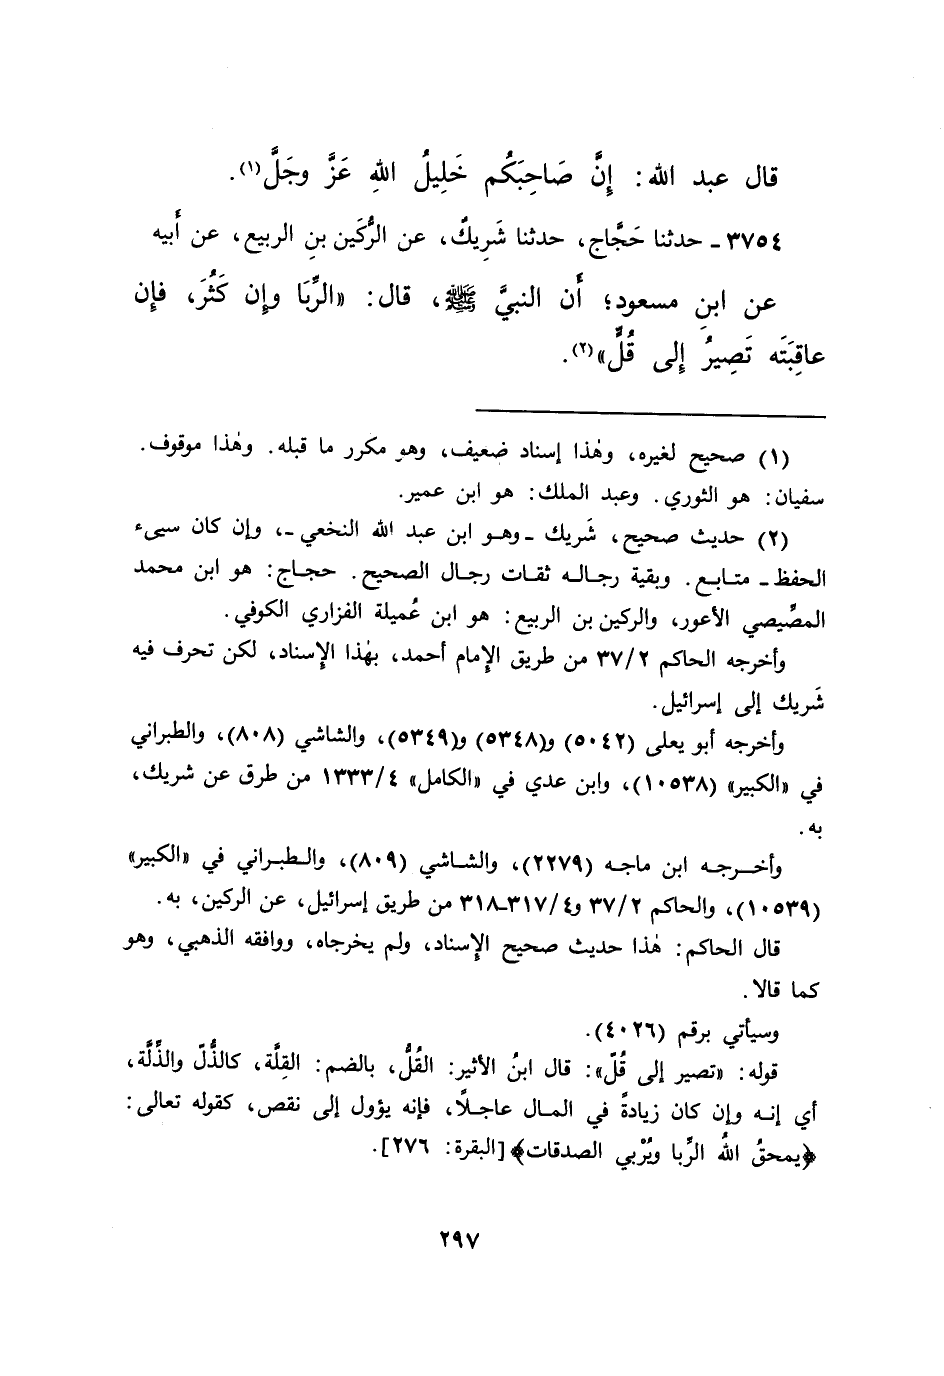 قال عبد الله: إِنَّ صَاحِبَكُم خَلِيلُ اللهِ عَزَّ وجَلَّ(١).
٣٧٥٤ ـ حدثنا حَجَّاج، حدثنا شَرِيكٌ، عن الرُّكَين بنِ الربيع، عن أَبيه
عن ابنِ مسعود؛ أَن النبيَّ ﷺ، قال: «الرِّبَا وإِن كَثُرَ، فإِن
عاقِبَتَه تَصِيرُ إِلى قُلٍّ»(٢).
(١) صحيح لغيره، وهٰذا إسناد ضعيف، وهو مكرر ما قبله. وهٰذا موقوف.
سفيان: هو الثوري. وعبد الملك: هو ابن عمير.
(٢) حديث صحيح، شَريك ـ وهو ابن عبد الله النخعي ـ، وإن كان سيىء
الحفظ ـ متابع. وبقية رجاله ثقات رجال الصحيح. حجاج: هو ابن محمد
المصِّيصي الأعور، والركين بن الربيع: هو ابن عُميلة الفزاري الكوفي.
وأخرجه الحاكم ٣٧/٢ من طريق الإمام أحمد، بهٰذا الإسناد، لكن تحرف فيه
شَريك إلى إسرائيل.
وأخرجه أبو يعلى (٥٠٤٢) و(٥٣٤٨) و(٥٣٤٩)، والشاشي (٨٠٨)، والطبراني
في «الكبير» (١٠٥٣٨)، وابن عدي في «الكامل» ١٣٣٣/٤ من طرق عن شريك،
به.
وأخرجه ابن ماجه (٢٢٧٩)، والشاشي (٨٠٩)، والطبراني في «الكبير»
(١٠٥٣٩)، والحاكم ٣٧/٢ و٣١٧/٤ـ٣١٨ من طريق إسرائيل، عن الركين، به.
قال الحاكم: هٰذا حديث صحيح الإسناد، ولم يخرجاه، ووافقه الذهبي، وهو
كما قالا.
وسيأتي برقم (٤٠٢٦).
قوله: «تصير إلى قُلّ»: قال ابنُ الأثير: القُلُّ، بالضم: القِلَّة، كالذُّلّ والذِّلَّة،
أي إنه وإن كان زيادةً في المال عاجلًا، فإنه يؤول إلى نقص، كقوله تعالى:
﴿يمحقُ اللهُ الرِّبا ويُرْبي الصدقات﴾ [البقرة: ٢٧٦].
٢٩٧